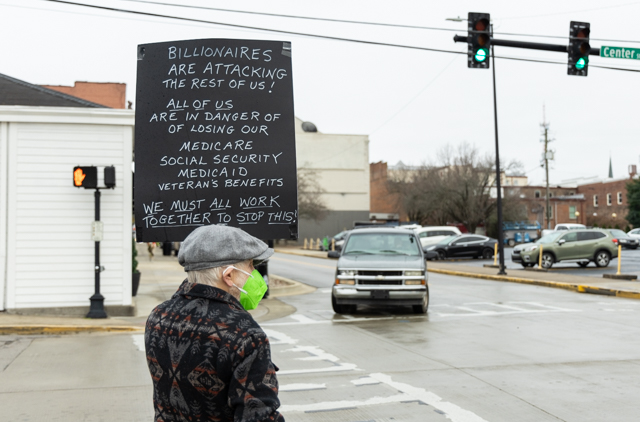 BILLIONAIRES
ARE ATTACKING
THE REST OF US!
ALL OF US
ARE IN DANGER OF
OF LOSING OUR
MEDICARE
SOCIAL SECURITY
MEDICAID
VETERAN'S BENEFITS
WE MUST ALL WORK
TOGETHER TO STOP THIS!
Center